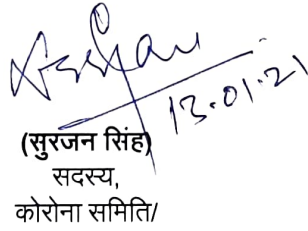 13.01.21
(सुरजन सिंह)
सदस्य,
कोरोना समिति/